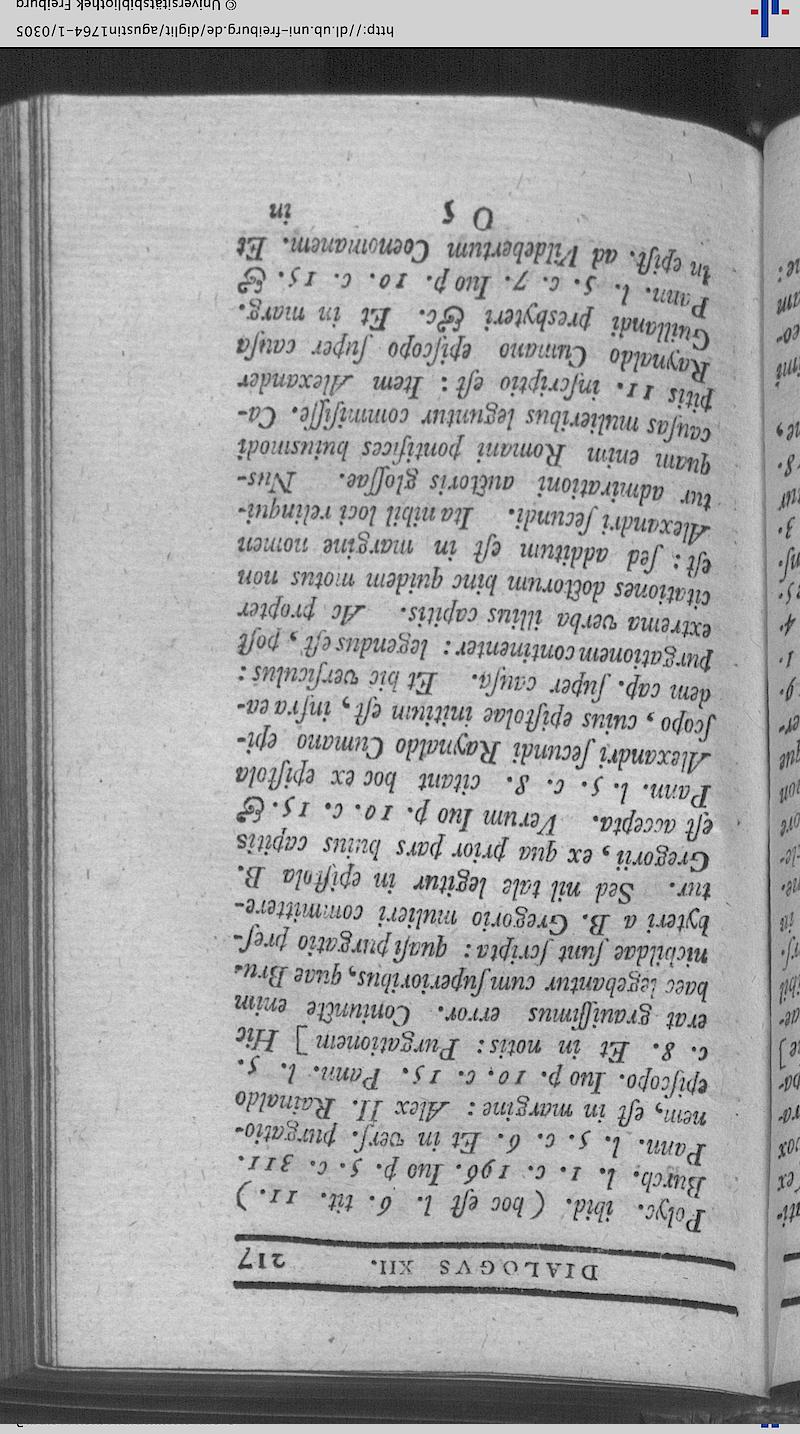 DIALOGVS XII. 217
Polyc. ibid. (hoc eſt l. 6. tit. 11.)
Burch. l. 1. c. 196. Iuo p. 5. c. 311.
Pann. l. 5. c. 6. Et in verſ. purgatio-
nem, eſt in margine: Alex II. Rainaldo
epiſcopo. Iuo p. 10. c. 15. Pann. l. 5.
c. 8. Et in notis: Purgationem] Hic
erat grauiſſimus error. Coniuncte enim
haec legebantur cum ſuperioribus, quae Bru-
nichildae ſunt ſcripta: quaſi purgatio preſ-
byteri a B. Gregorio mulieri committere-
tur. Sed nil tale legitur in epiſtola B.
Gregorii, ex qua prior pars huius capitis
eſt accepta. Verum Iuo p. 10. c. 15. &
Pann. l. 5. c. 8. citant hoc ex epiſtola
Alexandri ſecundi Raynaldo Cumano epi-
ſcopo, cuius epiſtolae initium eſt, infra ea-
dem cap. ſuper cauſa. Et hic verſiculus:
purgationem continenter: legendus eſt, poſt
extrema verba illius capitis. Ac propter
citationes doctorum hinc quidem motus non
eſt: ſed additum eſt in margine nomen
Alexandri ſecundi. Ita nihil loci relinqui-
tur admirationi auctoris gloſſae. Nus-
quam enim Romani pontifices huiusmodi
cauſas mulieribus leguntur commiſiſſe. Ca-
pitis 11. inſcriptio eſt: Item Alexander
Raynaldo Cumano epiſcopo ſuper cauſa
Guillandi presbyteri &c. Et in marg.
Pann. l. 5. c. 7. Iuo p. 10. c. 15. &
in epiſt. ad Vildebertum Coenomanem. Et
O 5 in
http://dl.ub.uni-freiburg.de/diglit/augustin1764-1/0305
© Universitätsbibliothek Freiburg